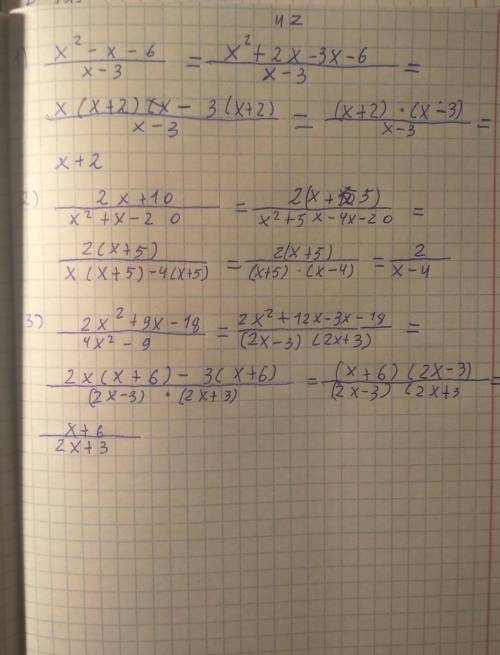 42
1) (x² - x - 6)/(x-3) = (x² + 2x - 3x - 6)/(x-3) =
(x(x+2) - 3(x+2))/(x-3) = ((x+2)·(x-3))/(x-3) =
x+2
2) (2x+10)/(x²+x-20) = (2(x+5))/(x²+5x-4x-20) =
(2(x+5))/(x(x+5)-4(x+5)) = (2(x+5))/((x+5)·(x-4)) = 2/(x-4)
3) (2x²+9x-18)/(4x²-9) = (2x²+12x-3x-18)/((2x-3)(2x+3)) =
(2x(x+6)-3(x+6))/((2x-3)·(2x+3)) = ((x+6)(2x-3))/((2x-3)(2x+3 =
(x+6)/(2x+3)